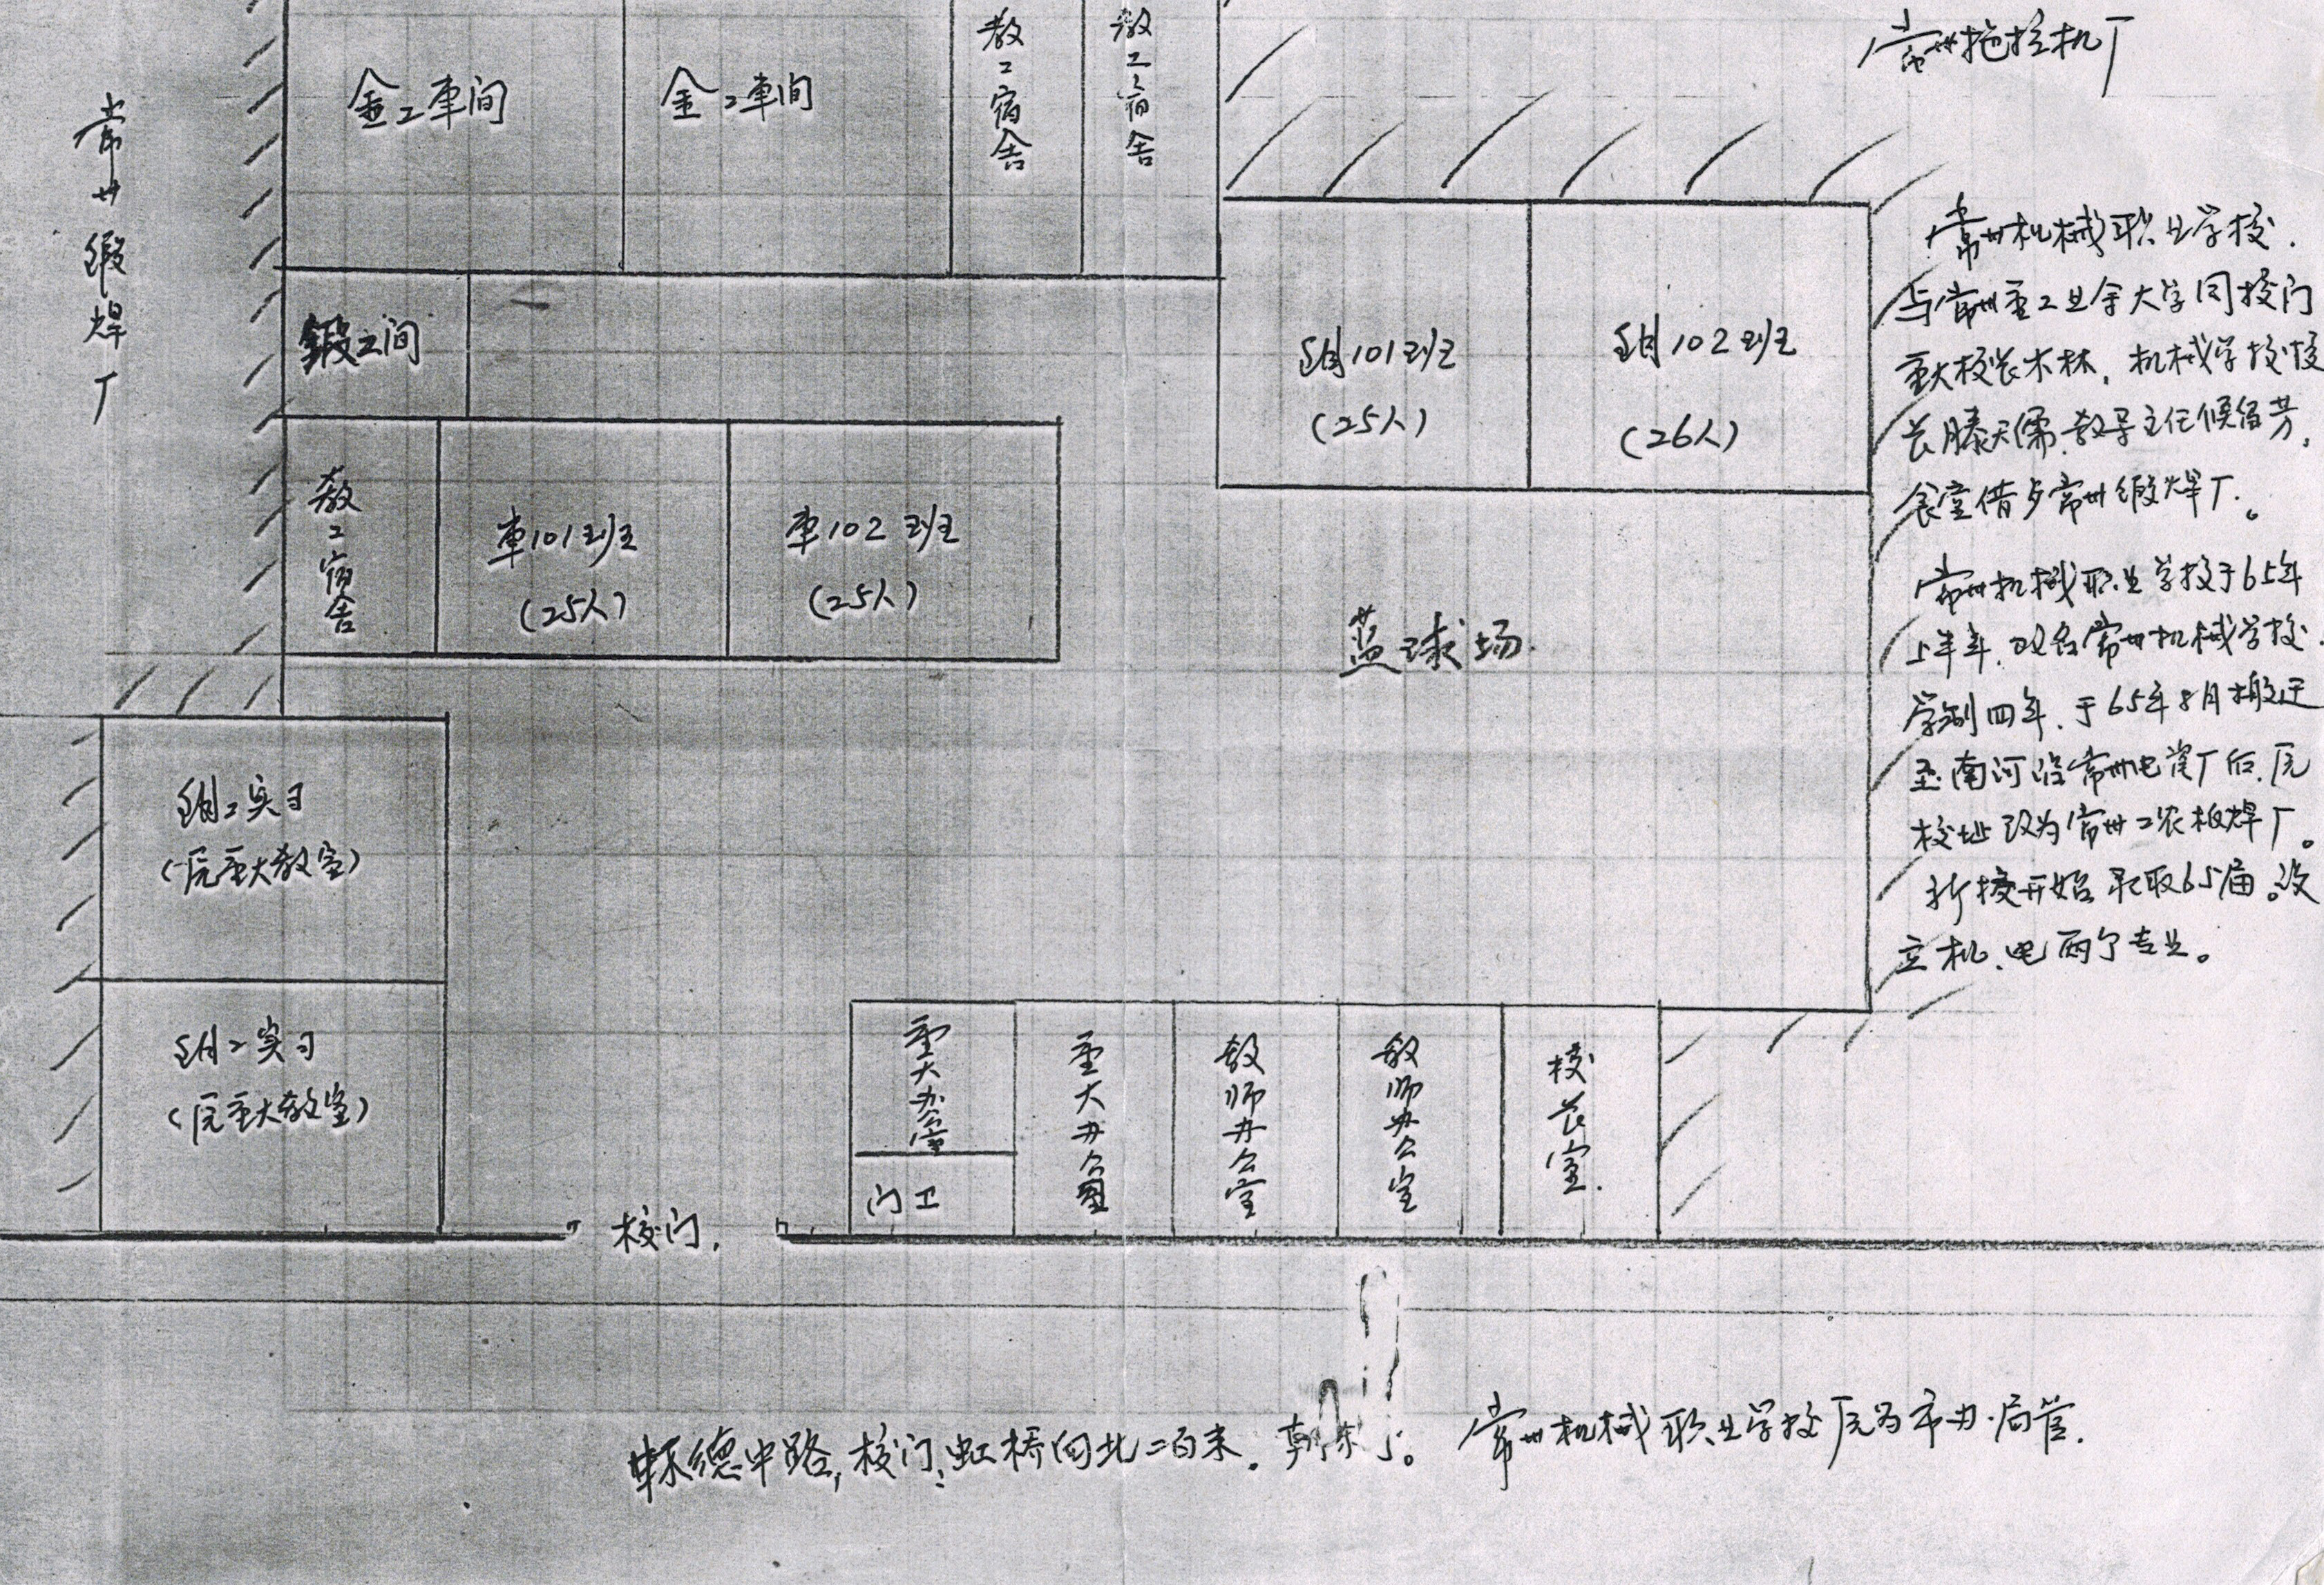 常州拖拉机厂
常州锻焊厂
金工車间
金工車间
教工宿舍
教工宿舍
鍛工间
钳101班
(25人)
钳102班
(26人)
教工宿舍
車101班
(25人)
車102班
(25人)
蓝球场.
钳工实习
(原重大教室)
钳工实习
(原重大教室)
重大办公室
门卫
重大办公室
教师办公室
教师办公室
校长室.
校门.
常州机械职业学校.
与常州重工业余大学同校门
重大校长木林, 机械学校校
长滕天儒.教导主任候留芳,
食堂借与常州锻焊厂。
常州机械职业学校于65年
上半年.改名常州机械学校.
学制四年.于65年8月搬迁
至南河沿常州电瓷厂后.原
校址改为常州工农板焊厂。
新校开始录取65届。设
立机、电两个专业。
怀德中路,校门:虹桥向北二百米.朝东。
常州机械职业学校原为市办.局管.